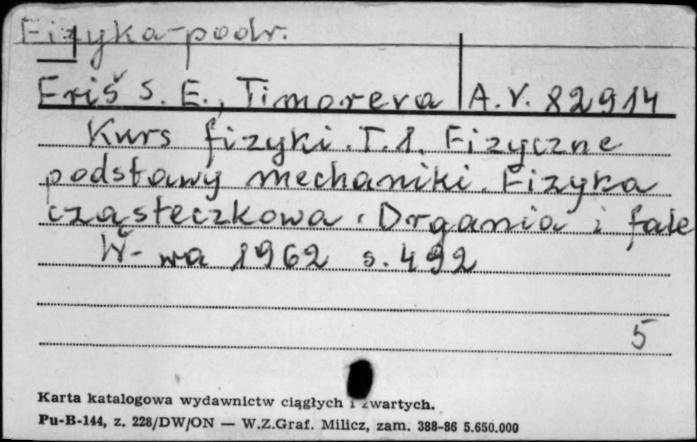 Fizyka-podr.
Friš S. E., Timoreva A. V. 82914
Kurs fizyki. T. 1. Fizyczne
podstawy mechaniki. Fizyka
cząsteczkowa. Drgania i fale
W-wa 1962 s. 492
5
Karta katalogowa wydawnictw ciągłych i zwartych.
Pu-B-144, z. 228/DW/ON — W.Z.Graf. Milicz, zam. 388-86 5.650.000